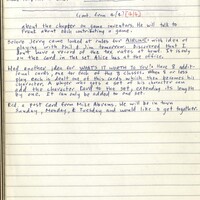 (cont. from 4/7)
about the chapter on Game inventors. He will talk to
Trout about also contributing a game.
Before Jerry came looked at rules for AIRLINES with idea of
playing with Phil & Jim tomorrow. Discovered that I
don't have a record of the two rates of
on the card in the set Alice has at the office.
Had another idea for WHAT'S IT WORTH to
additional cards, one for each of the 8 classes. When 8 or less
play each is dealt one of the cards which then becomes his
character. A player who gets a set of his character can
add the character card to the set, extending its length
by one. It can only be added to one set.
Had a post card from Mike Abrams. He will be in town
Sunday, Monday, & Tuesday and would like to get together.